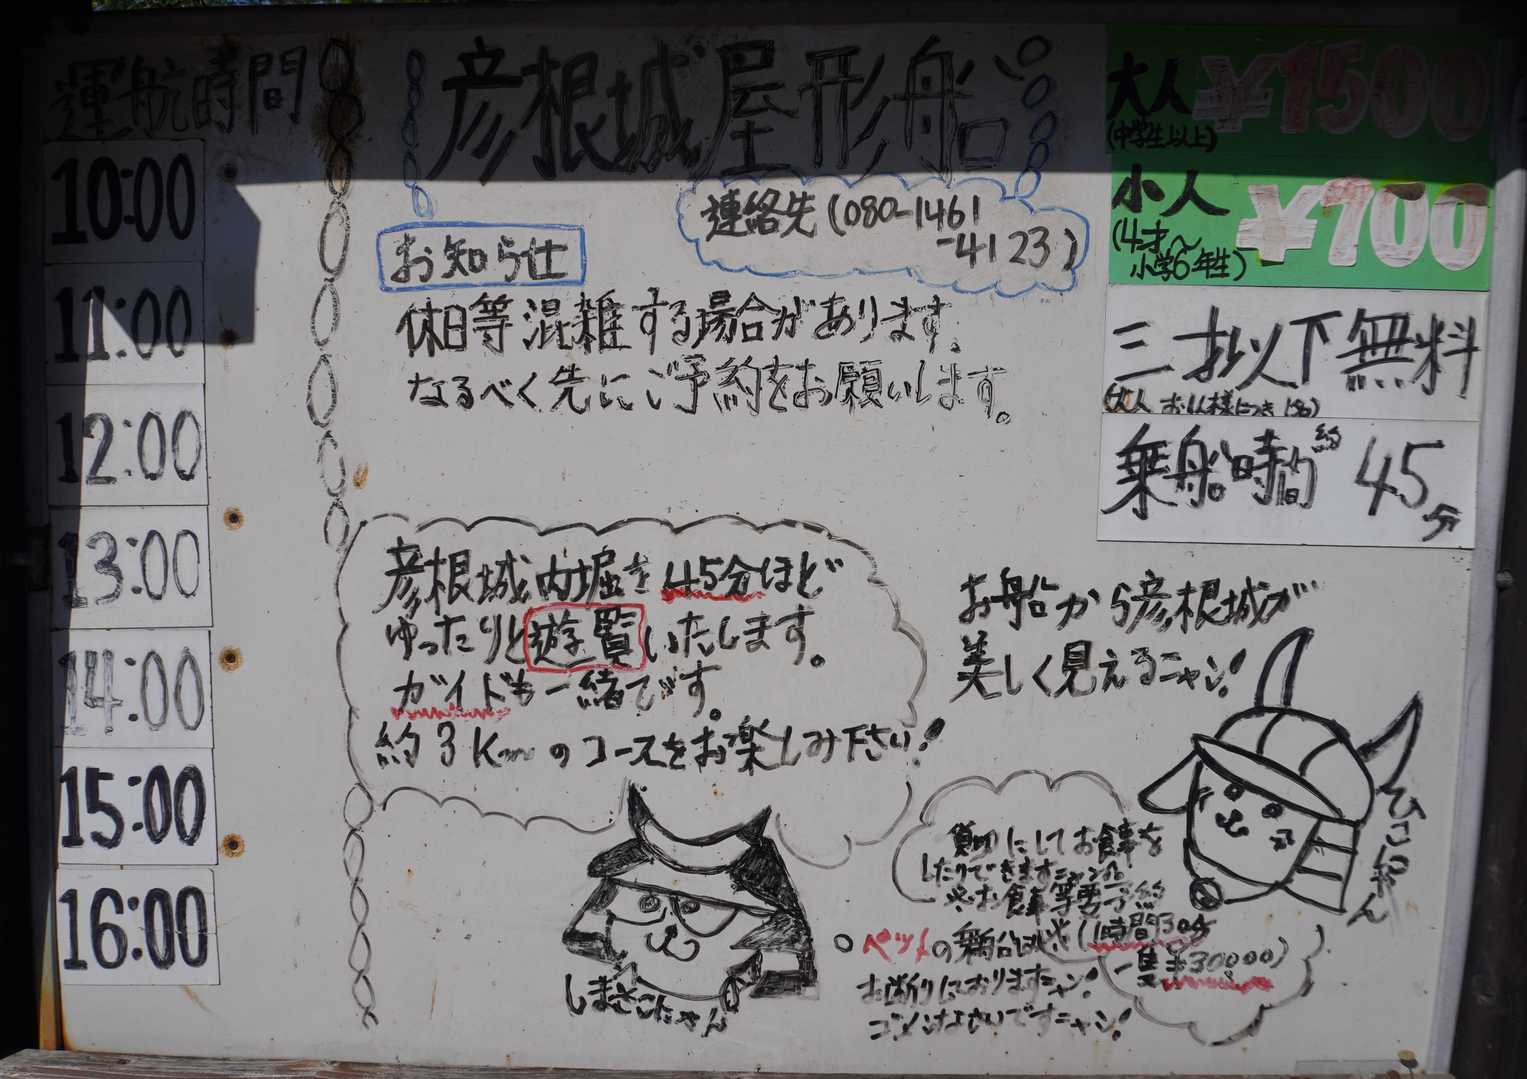 運航時間
10:00
11:00
12:00
13:00
14:00
15:00
16:00
彦根城屋形船
連絡先(080-1461
-4123)
お知らせ
休日等混雑する場合があります。
なるべく先にご予約をお願いします。
大人 ¥1500
(中学生以上)
小人 ¥700
(4才〜
小学6年生)
三才以下無料
(大人 お一人様につき 1名)
乗船時間 約45分
彦根城内堀を45分ほど
ゆったりと遊覧いたします。
ガイドも一緒です。
約3Kmのコースをお楽しみ下さい!
お船から彦根城が
美しく見えるニャン!
ひこにゃん
しまさこにゃん
貸切にしてお食事を
したりできますニャン
※お食事等要予約
(1時間30分
一隻¥30000)
ペットの乗船は
お断りしておりますニャン!
ゴメンなさいですニャン!